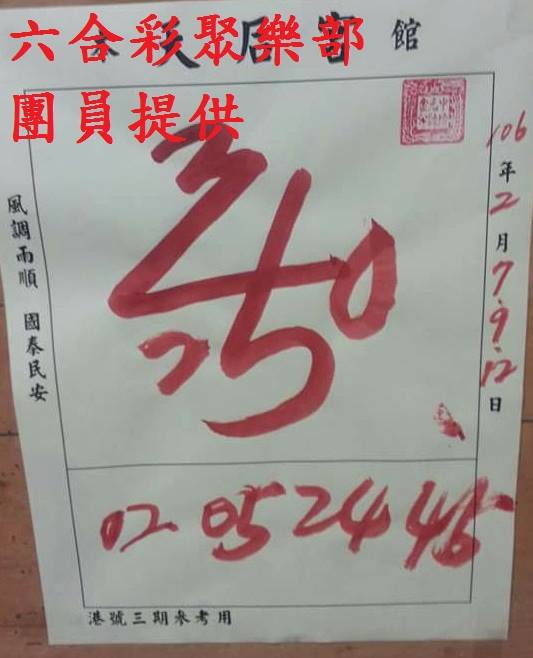 六合彩聚樂部
團員提供
館
106年2月7.9.12日
風調雨順 國泰民安
02 05 24 46
港號三期參考用